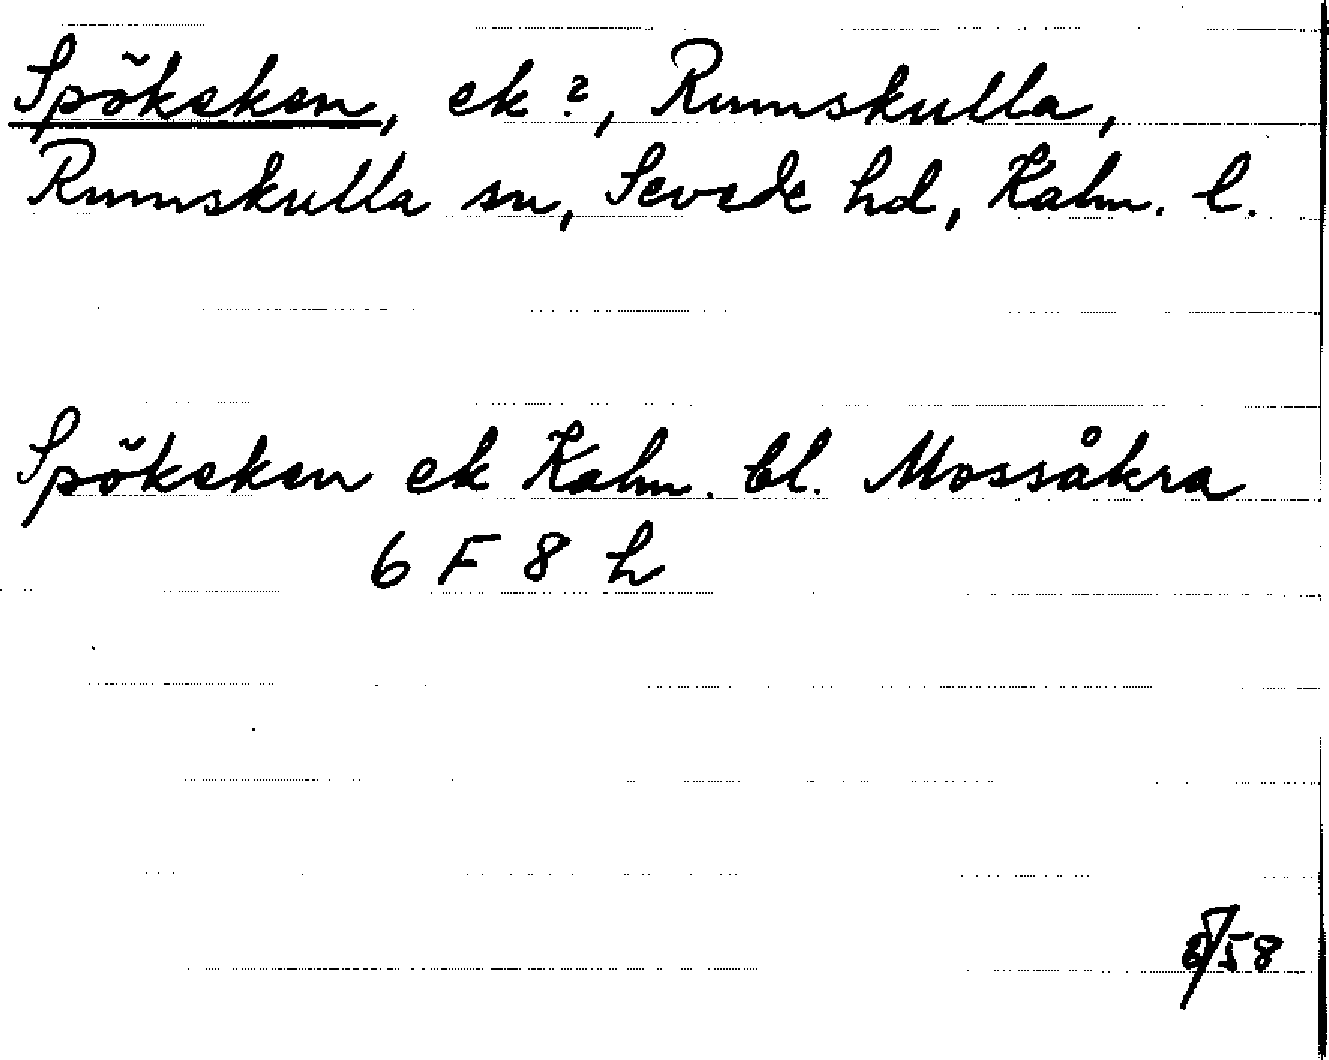 Spökeken, ek?, Rumskulla,
Rumskulla sn, Sevede hd, Kalm. l.
Spökeken ek Kalm. bl. Mossåkra
6 F 8 h